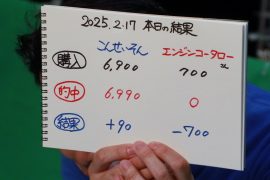 2025.2.17 本日の結果
こんせいそん エンジンコータローさん
購入 6,900 700
的中 6,990 0
結果 +90 -700